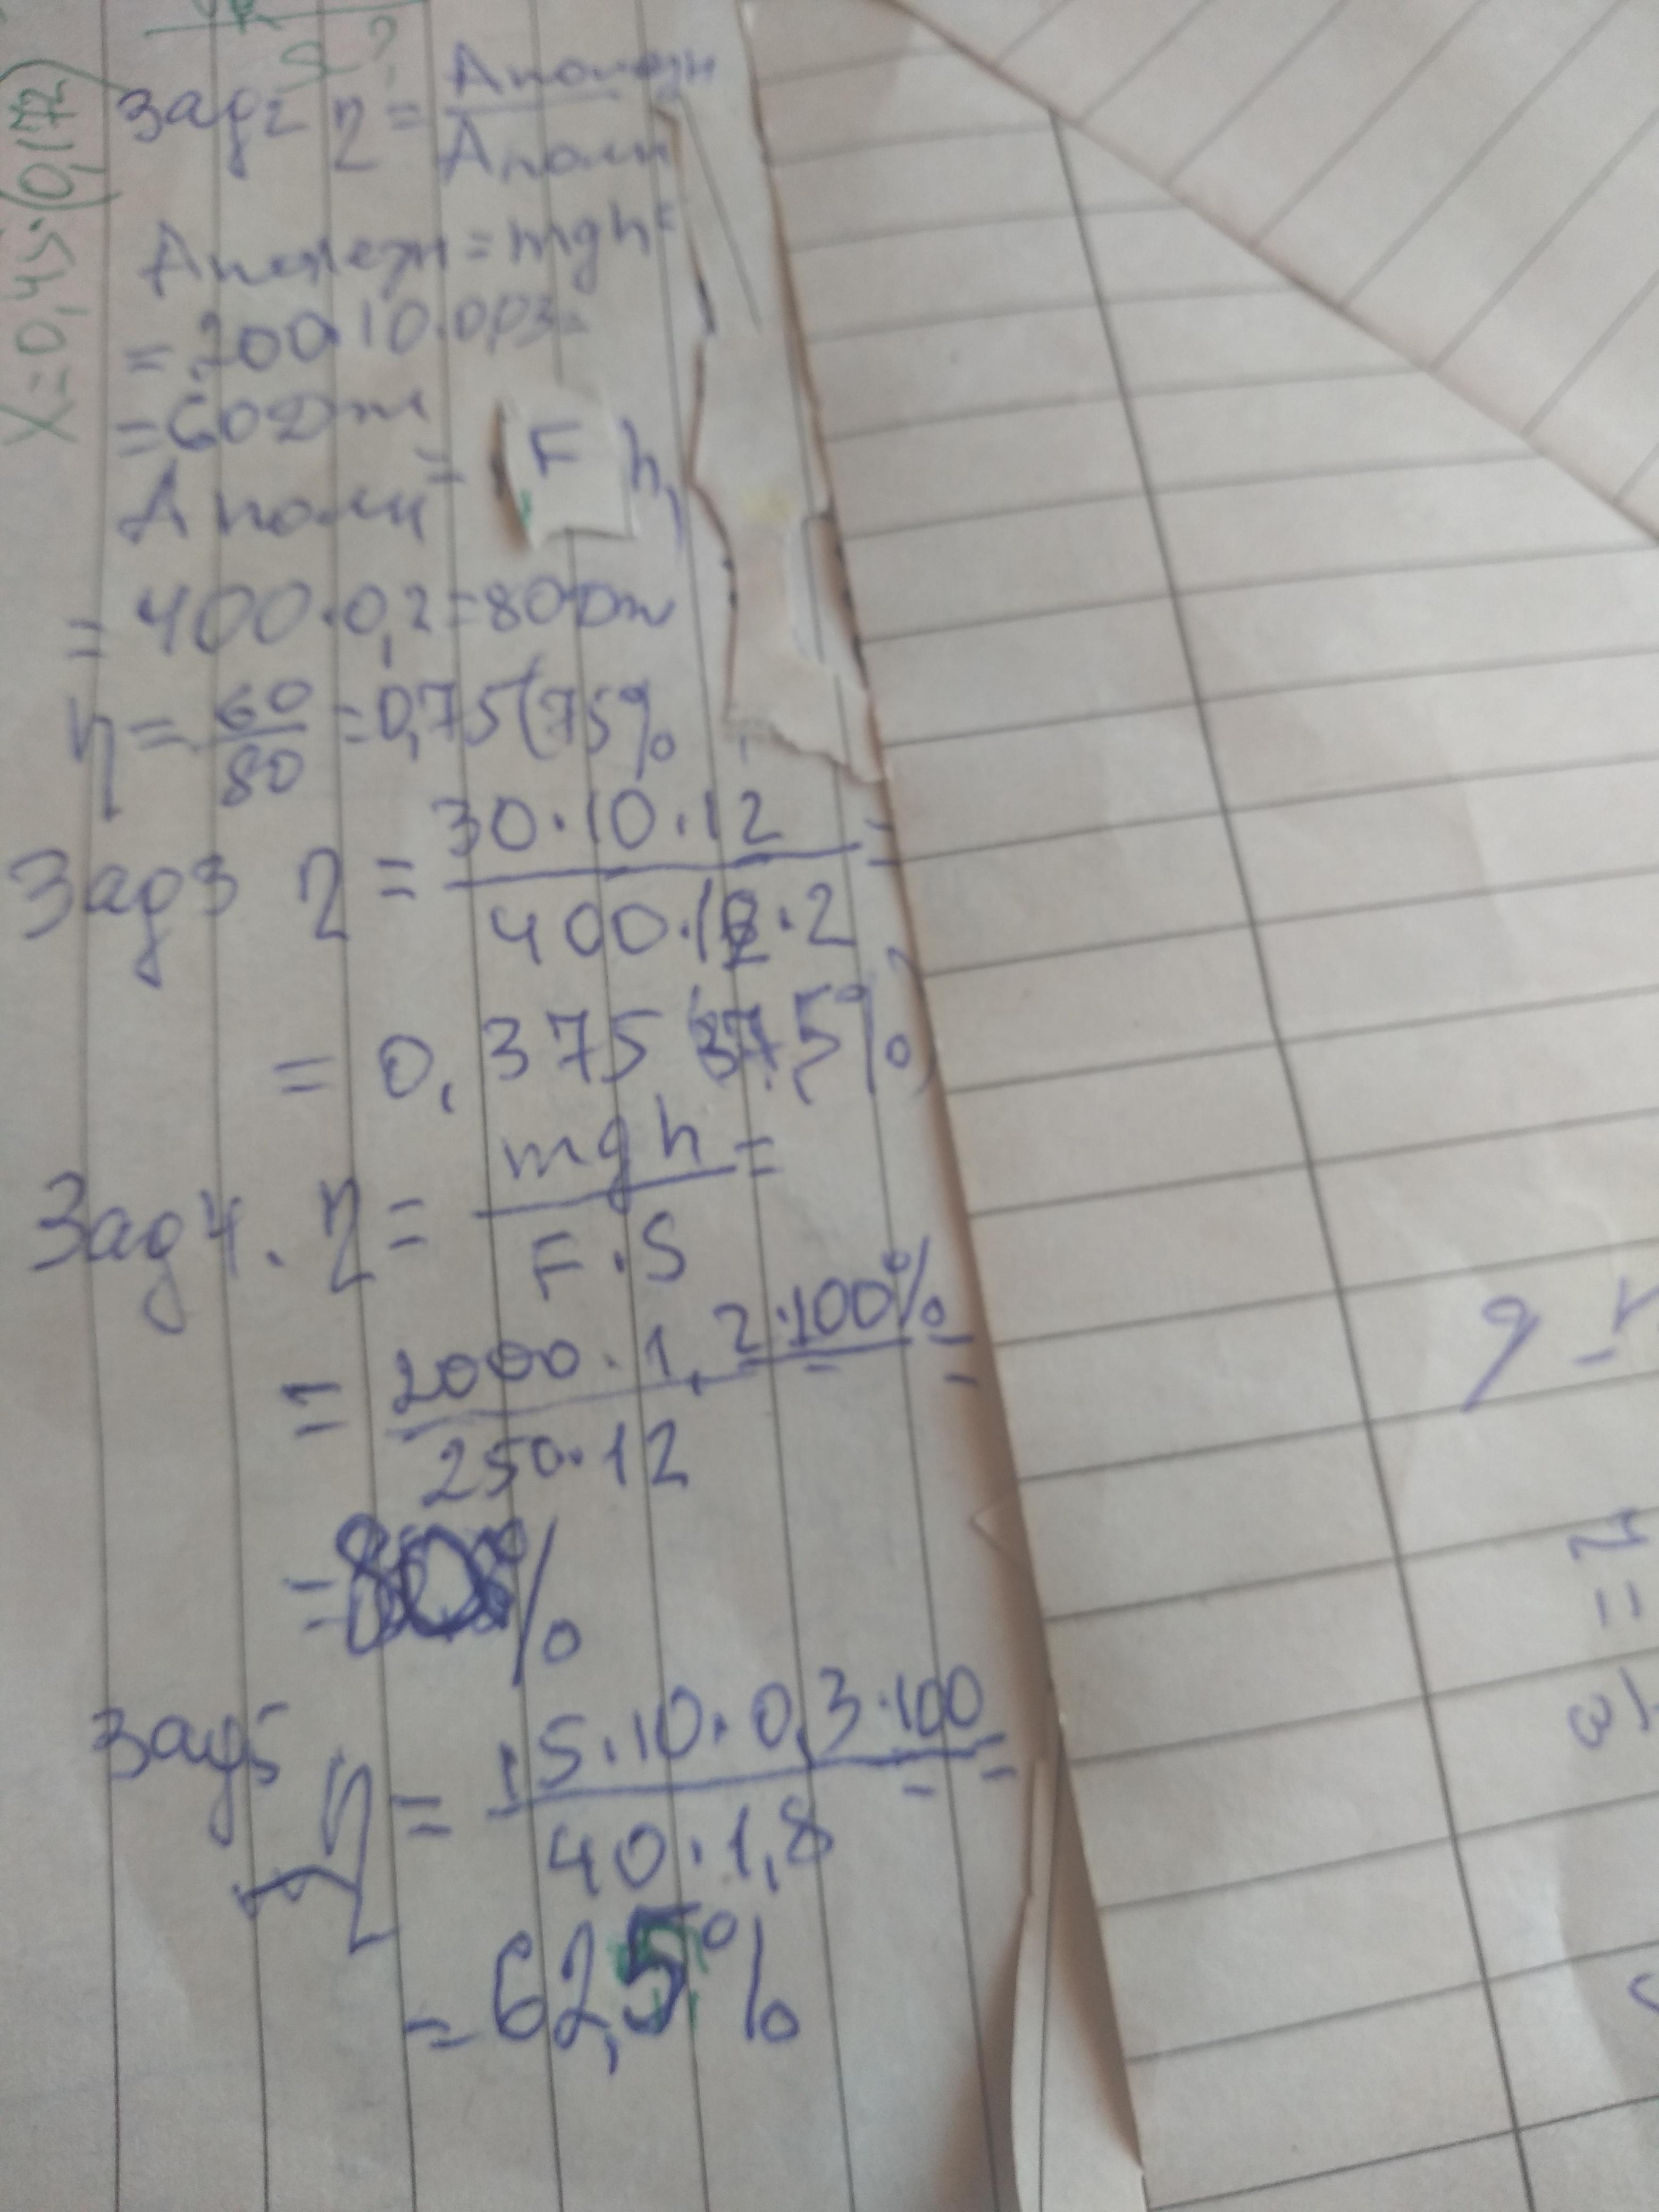 X=0,45·(0,172)
S ?
Зад2 η = Аполезн / Аполн
Аполезн = mgh =
= 200·10·0,03=
= 60Дж
Аполн = F h,
= 400·0,2=80Дж
η = 60/80 = 0,75(75%
Зад3 η = 30·10·12 / 400·12·2 =
= 0,375 (37,5%)
Зад4. η = mgh / F·S =
= 2000·1,2·100% / 250·12 =
=80%
Зад5
η = 15·10·0,3·100 / 40·1,8 =
= 62,5%